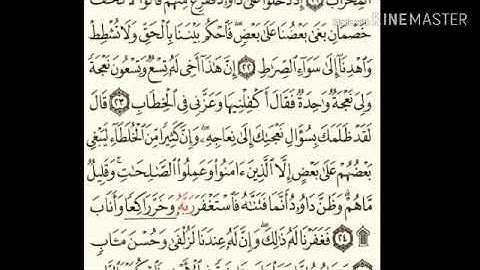 KINEMASTER
ٱلْمِحْرَابَ ٢١ إِذْ دَخَلُوا۟ عَلَىٰ دَاوُۥدَ فَفَزِعَ مِنْهُمْ قَالُوا۟ لَا تَخَفْ
خَصْمَانِ بَغَىٰ بَعْضُنَا عَلَىٰ بَعْضٍ فَٱحْكُم بَيْنَنَا بِٱلْحَقِّ وَلَا تُشْطِطْ
وَٱهْدِنَآ إِلَىٰ سَوَآءِ ٱلصِّرَٰطِ ٢٢ إِنَّ هَٰذَآ أَخِى لَهُۥ تِسْعٌ وَتِسْعُونَ نَعْجَةً
وَلِىَ نَعْجَةٌ وَٰحِدَةٌ فَقَالَ أَكْفِلْنِيهَا وَعَزَّنِى فِى ٱلْخِطَابِ ٢٣ قَالَ
لَقَدْ ظَلَمَكَ بِسُؤَالِ نَعْجَتِكَ إِلَىٰ نِعَاجِهِۦ وَإِنَّ كَثِيرًا مِّنَ ٱلْخُلَطَآءِ لَيَبْغِى
بَعْضُهُمْ عَلَىٰ بَعْضٍ إِلَّا ٱلَّذِينَ ءَامَنُوا۟ وَعَمِلُوا۟ ٱلصَّٰلِحَٰتِ وَقَلِيلٌ
مَّا هُمْ ۗ وَظَنَّ دَاوُۥدُ أَنَّمَا فَتَنَّٰهُ فَٱسْتَغْفَرَ رَبَّهُۥ وَخَرَّ رَاكِعًا وَأَنَابَ
۩ ٢٤ فَغَفَرْنَا لَهُۥ ذَٰلِكَ ۖ وَإِنَّ لَهُۥ عِندَنَا لَزُلْفَىٰ وَحُسْنَ مَـَٔابٍ